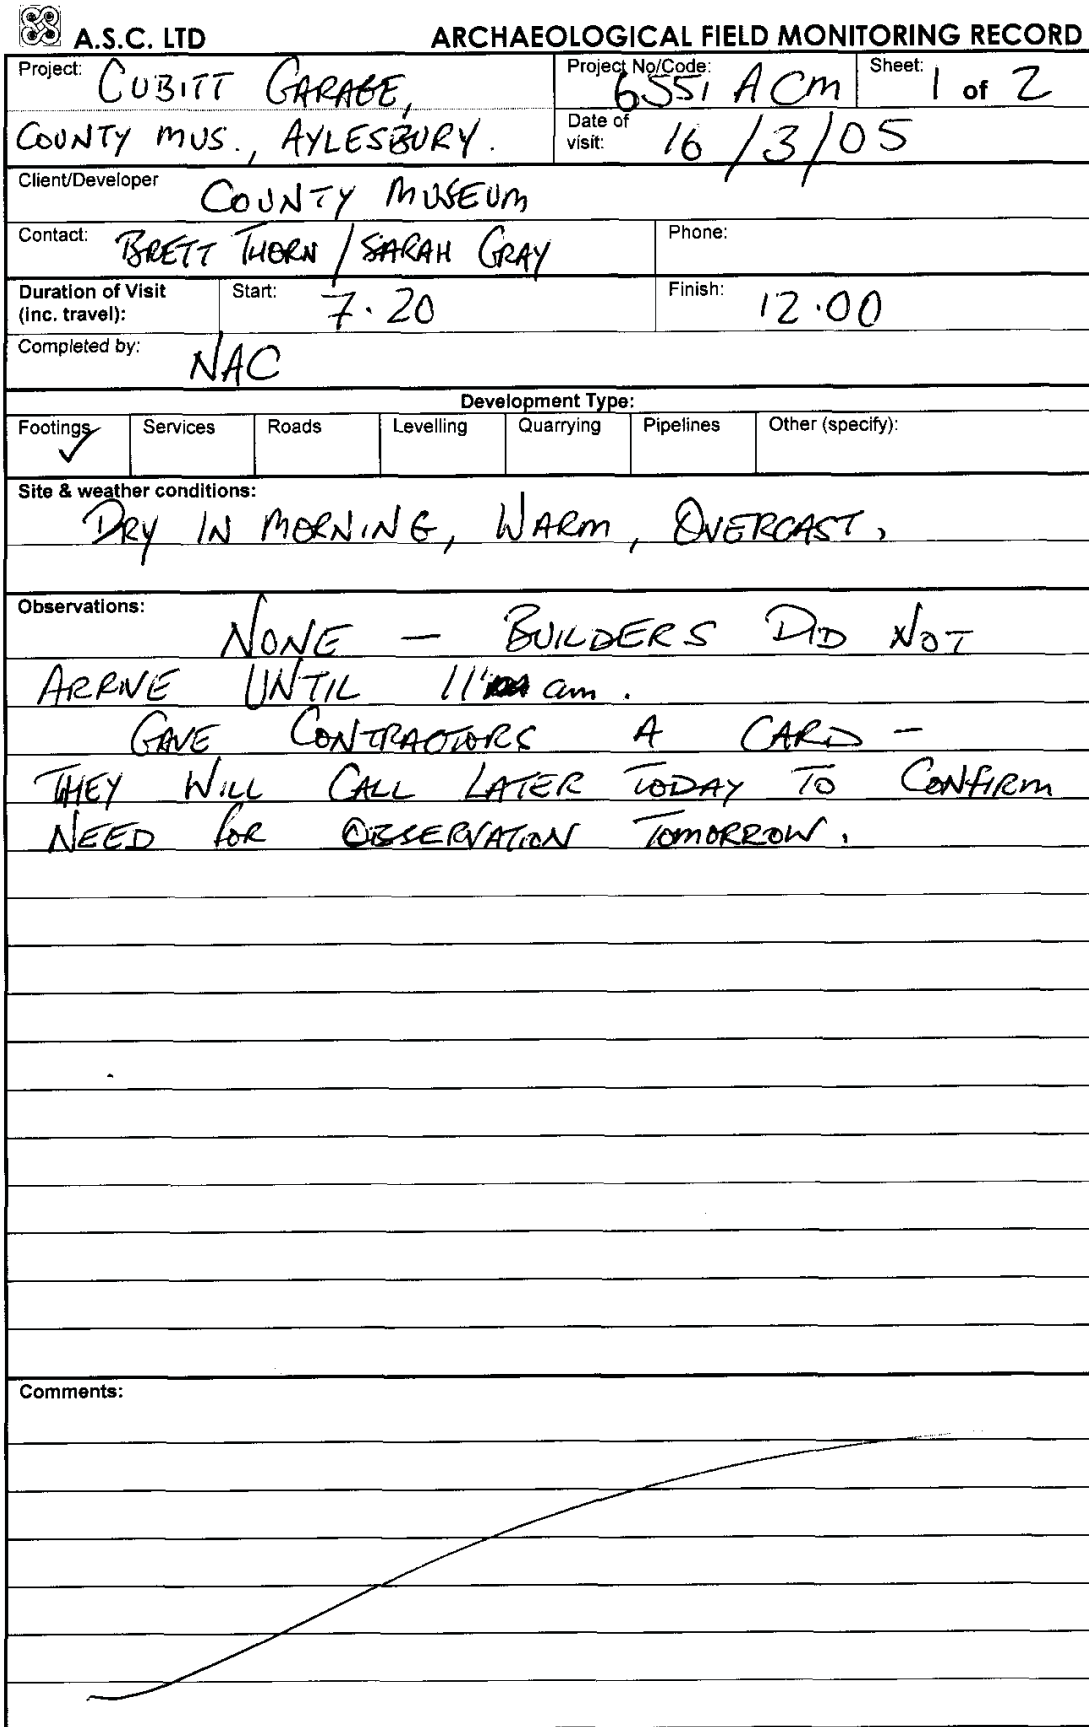 A.S.C. LTD ARCHAEOLOGICAL FIELD MONITORING RECORD
Project: CUBITT GARAGE, Project No/Code: 6551 ACM Sheet: 1 of 2
COUNTY MUS., AYLESBURY. Date of visit: 16/3/05
Client/Developer COUNTY MUSEUM
Contact: BRETT THORN / SARAH GRAY Phone:
Duration of Visit (inc. travel): Start: 7.20 Finish: 12.00
Completed by: NAC
Development Type:
Footings ✓ Services Roads Levelling Quarrying Pipelines Other (specify):
Site & weather conditions:
DRY IN MORNING, WARM, OVERCAST,
Observations:
NONE – BUILDERS DID NOT
ARRIVE UNTIL 11 am.
GAVE CONTRACTORS A CARD –
THEY WILL CALL LATER TODAY TO CONFIRM
NEED FOR OBSERVATION TOMORROW.
Comments: